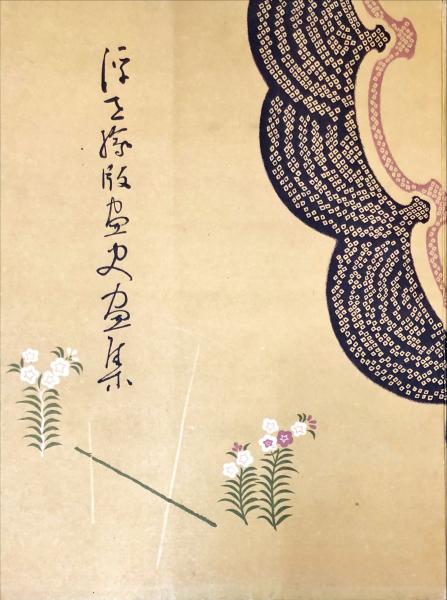 浮世繪版画史画集